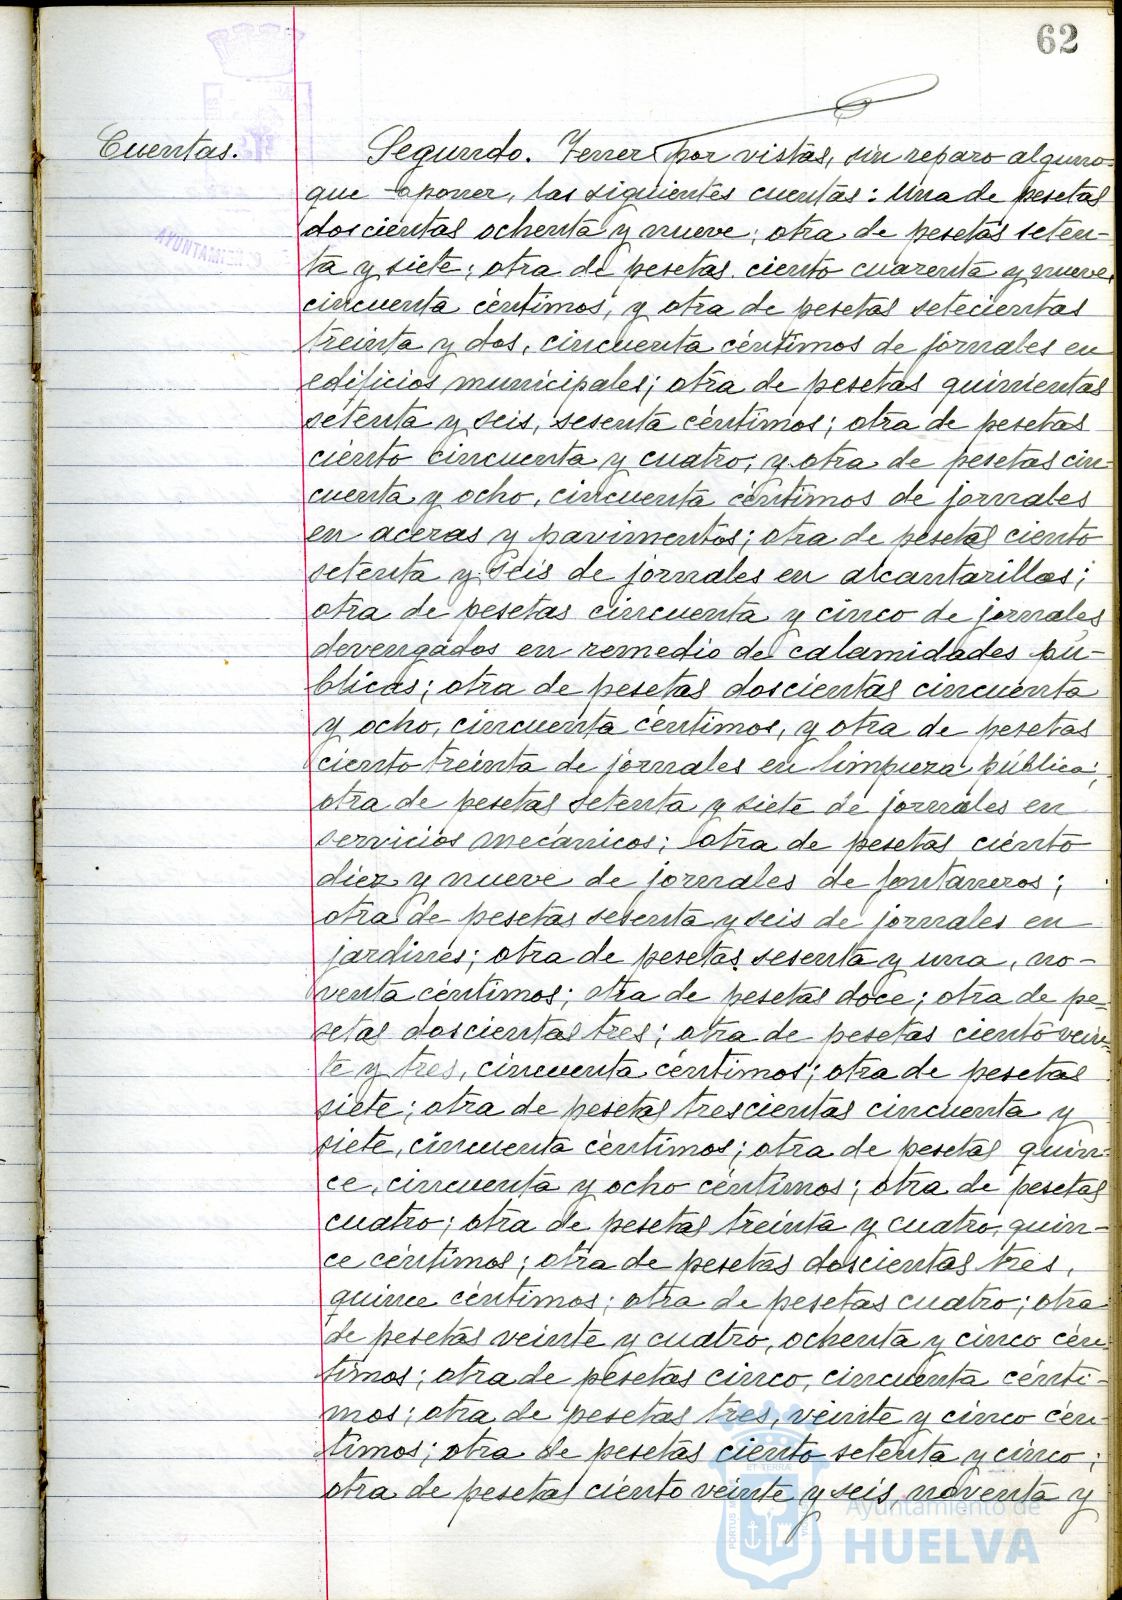 62
Cuentas.
Segundo. Tener por vistas, sin reparo alguno
que oponer, las siguientes cuentas: Una de pesetas
doscientas ochenta y nueve; otra de pesetas seten-
ta y siete; otra de pesetas ciento cuarenta y nueve,
cincuenta céntimos, y otra de pesetas setecientas
treinta y dos, cincuenta céntimos de jornales en
edificios municipales; otra de pesetas quinientas
setenta y seis, sesenta céntimos; otra de pesetas
ciento cincuenta y cuatro; y otra de pesetas cin-
cuenta y ocho, cincuenta céntimos de jornales
en aceras y pavimentos; otra de pesetas ciento
setenta y seis de jornales en alcantarillas;
otra de pesetas cincuenta y cinco de jornales
devengados en remedio de calamidades pú-
blicas; otra de pesetas doscientas cincuenta
y ocho, cincuenta céntimos, y otra de pesetas
ciento treinta de jornales en limpieza pública;
otra de pesetas setenta y siete de jornales en
servicios mecánicos; otra de pesetas ciento
diez y nueve de jornales de fontaneros;
otra de pesetas sesenta y seis de jornales en
jardines; otra de pesetas sesenta y una, no-
venta céntimos; otra de pesetas doce; otra de pe-
setas doscientas tres; otra de pesetas ciento vein-
te y tres, cincuenta céntimos; otra de pesetas
siete; otra de pesetas trescientas cincuenta y
siete, cincuenta céntimos; otra de pesetas quin-
ce, cincuenta y ocho céntimos; otra de pesetas
cuatro; otra de pesetas treinta y cuatro, quin-
ce céntimos; otra de pesetas doscientas tres,
quince céntimos; otra de pesetas cuatro; otra
de pesetas veinte y cuatro, ochenta y cinco cén-
timos; otra de pesetas cinco, cincuenta cénti-
mos; otra de pesetas tres, veinte y cinco cén-
timos; otra de pesetas ciento setenta y cinco;
otra de pesetas ciento veinte y seis noventa y
Ayuntamiento de
HUELVA